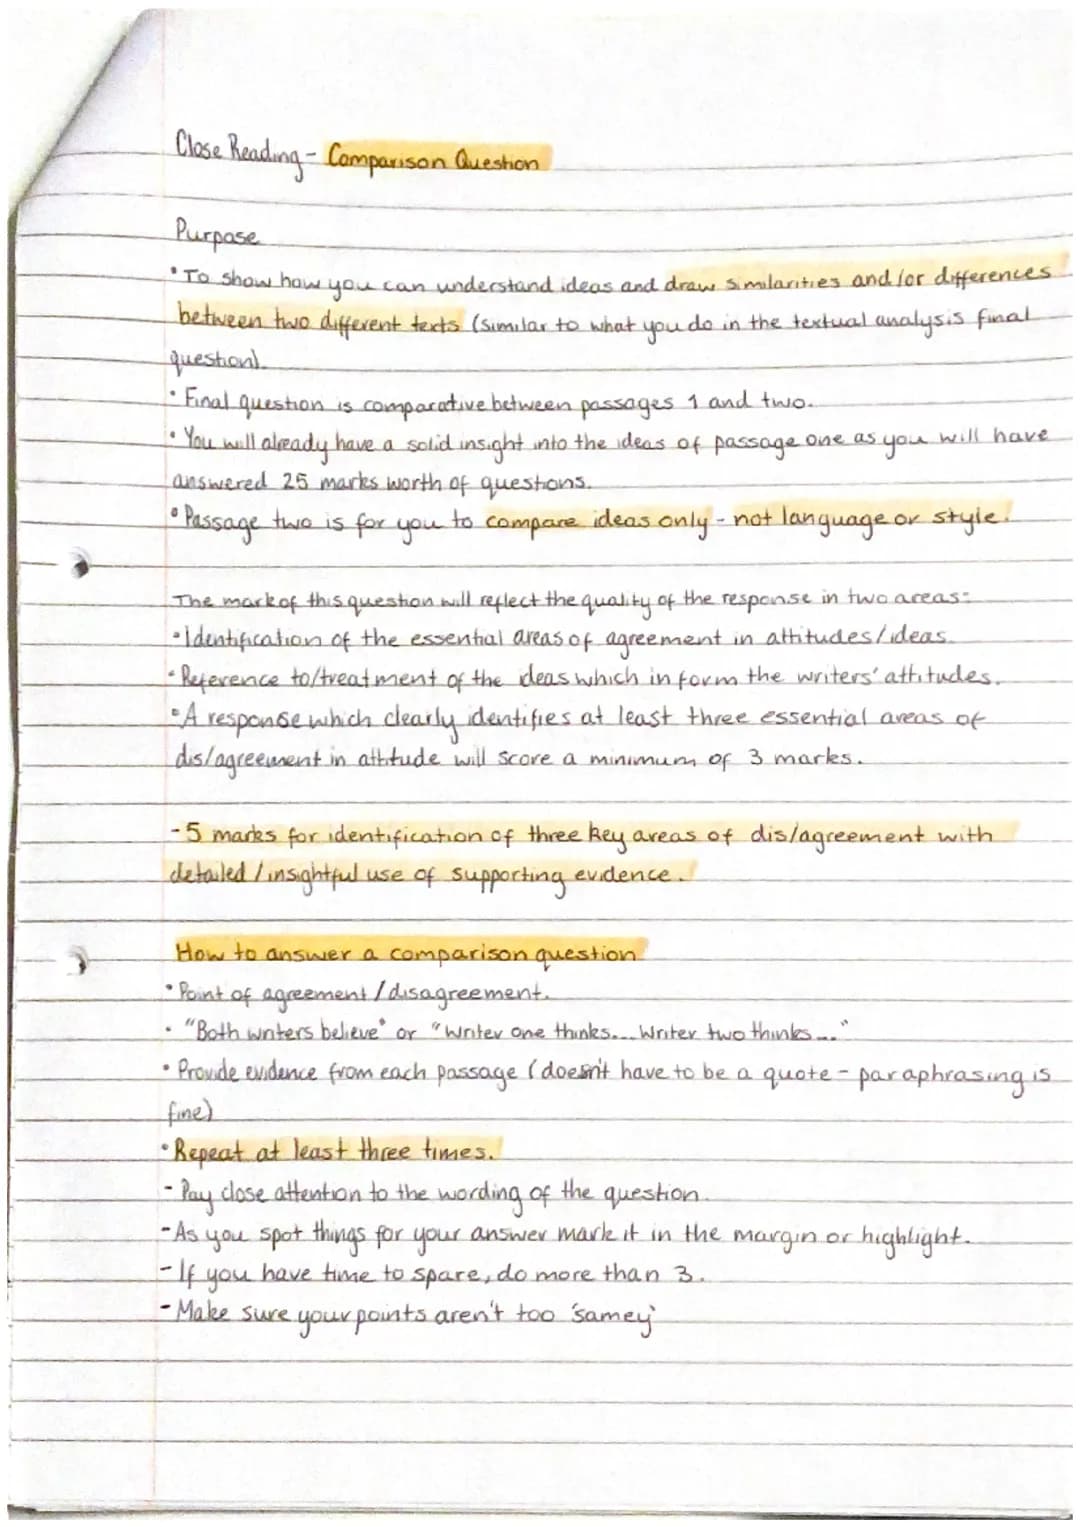 Close Reading - Comparison Question
Purpose
• To show how you can understand ideas and draw similarities and/or differences
between two different texts (similar to what you do in the textual analysis final
question).
• Final question is comparative between passages 1 and two.
• You will already have a solid insight into the ideas of passage one as you will have
answered 25 marks worth of questions.
• Passage two is for you to compare ideas only - not language or style.
The mark of this question will reflect the quality of the response in two areas:
• Identification of the essential areas of agreement in attitudes/ideas.
• Reference to/treatment of the ideas which inform the writers' attitudes.
• A response which clearly identifies at least three essential areas of
dis/agreement in attitude will score a minimum of 3 marks.
- 5 marks for identification of three key areas of dis/agreement with
detailed/insightful use of supporting evidence.
How to answer a comparison question
• Point of agreement/disagreement.
• "Both writers believe" or "Writer one thinks... Writer two thinks..."
• Provide evidence from each passage (doesn't have to be a quote - paraphrasing is
fine)
• Repeat at least three times.
- Pay close attention to the wording of the question.
- As you spot things for your answer mark it in the margin or highlight.
- If you have time to spare, do more than 3.
- Make sure your points aren't too 'samey'